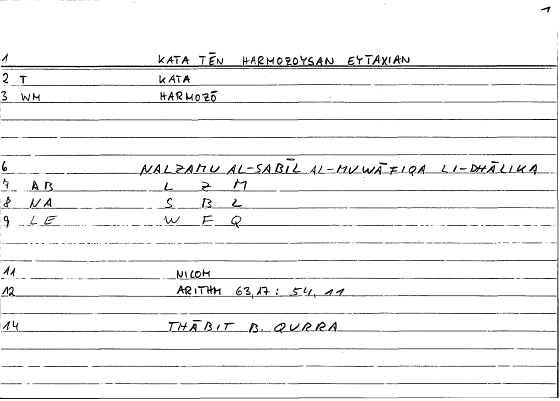 1
1 KATA TĒN HARMOZOYSAN EYTAXIAN
2 T KATA
3 WM HARMOZŌ
6 NALZAMU AL-SABĪL AL-MUWĀFIQA LI-DHĀLIKA
7 AB L Z M
8 NA S B L
9 LE W F Q
11 NICOM
12 ARITHM 63,17 : 54, 11
14 THĀBIT B. QURRA